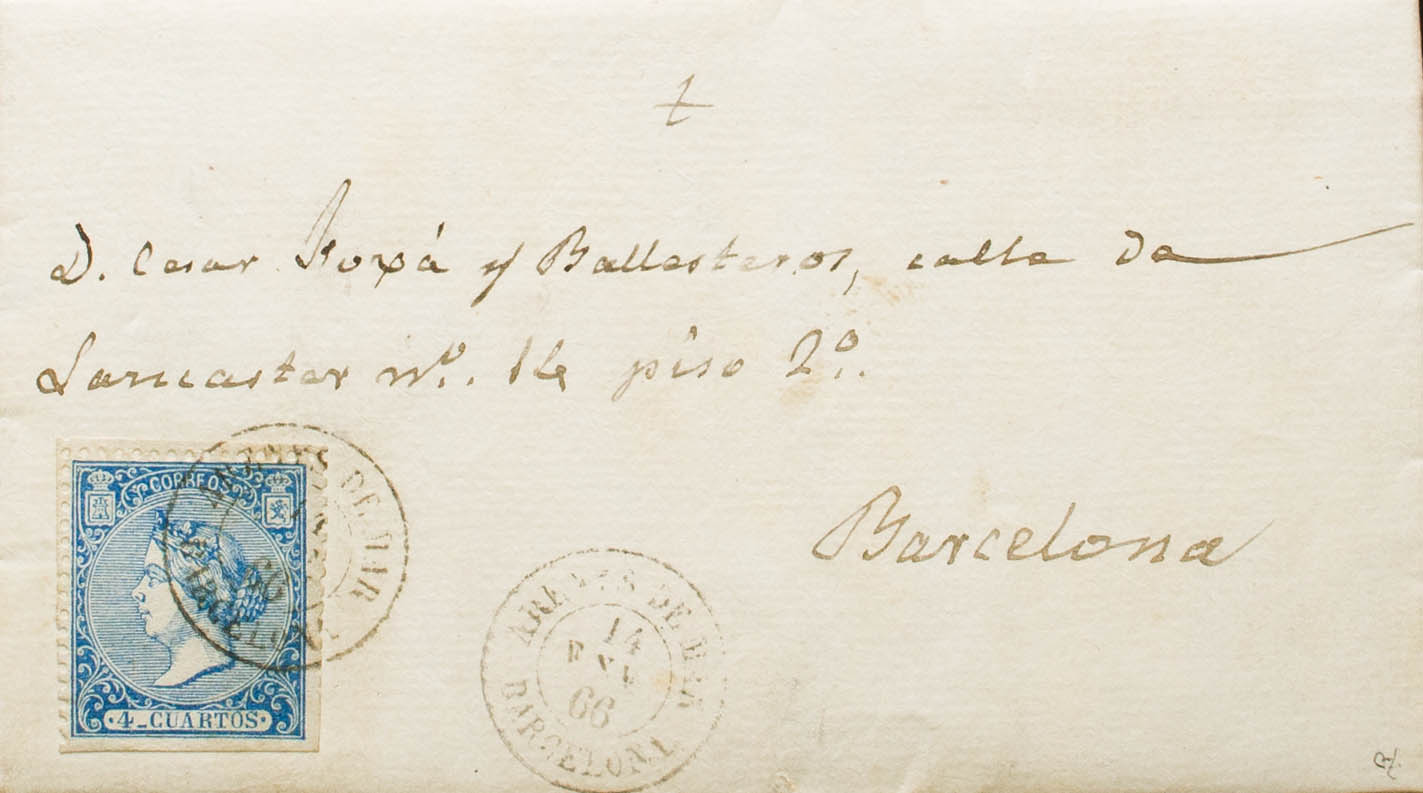 D. Cesar y Ballesteros, calle de
Lancaster nº. 14 piso 2º.
Barcelona
CORREOS
4_CUARTOS
ARENYS DE MAR
BARCELONA
ARENYS DE MAR
14
ENE
66
BARCELONA